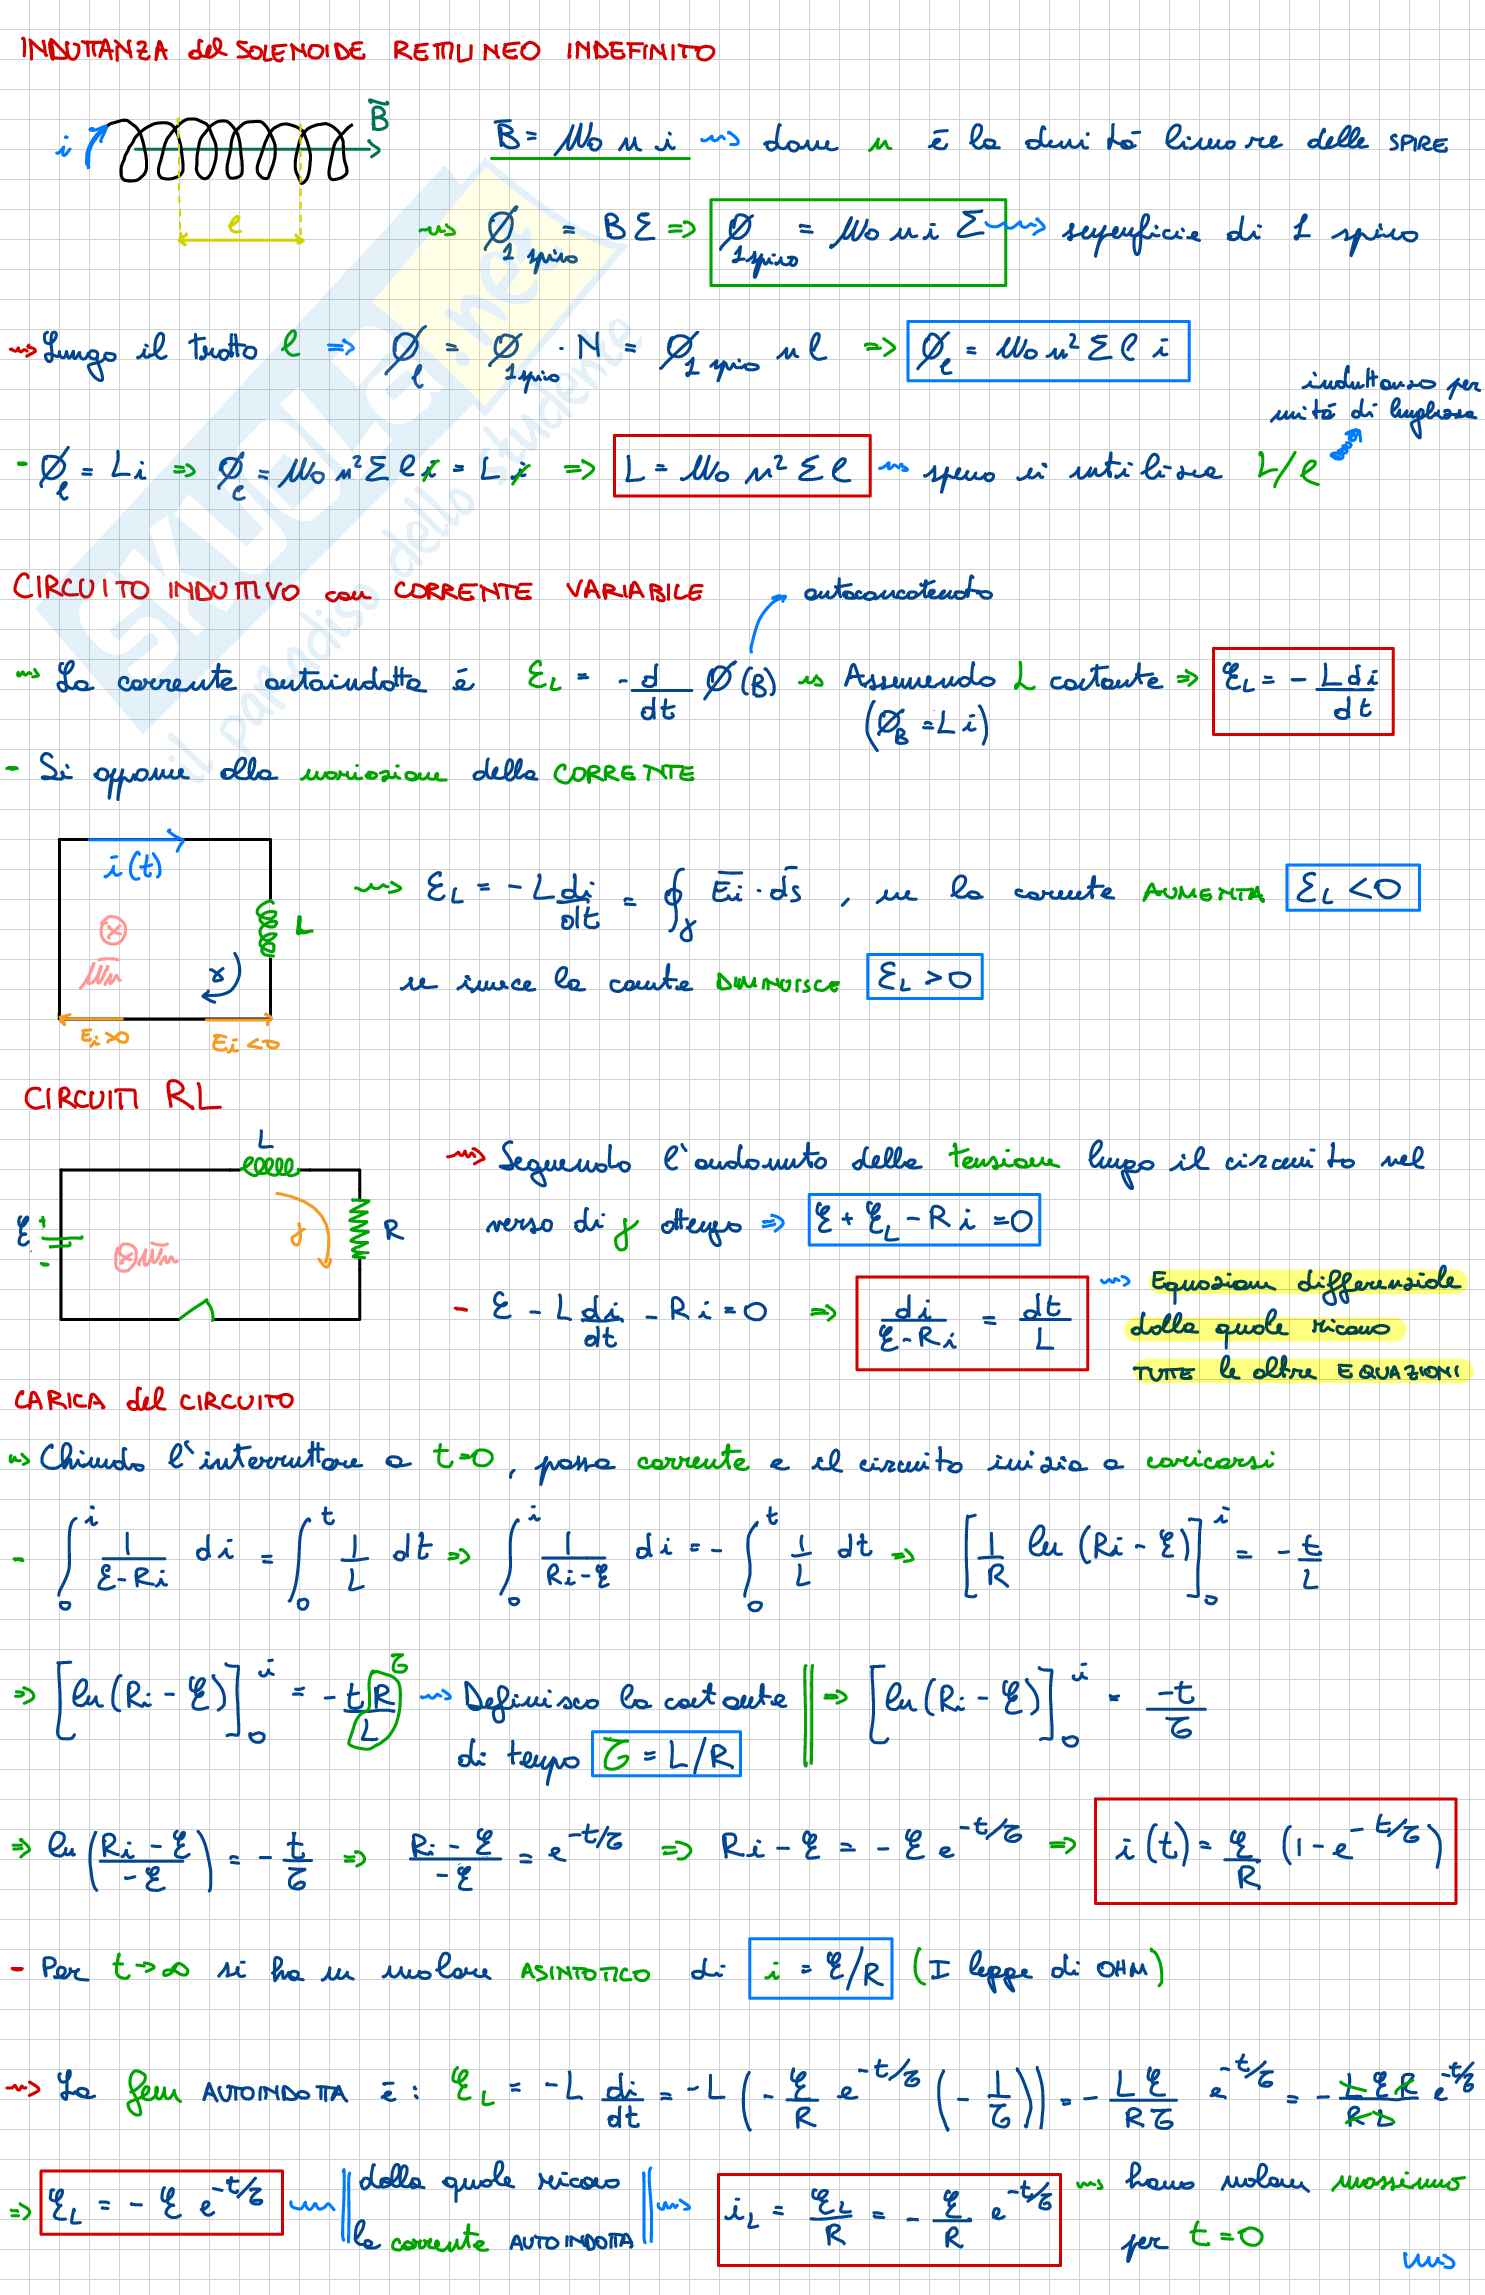 INDUTTANZA del SOLENOIDE RETTILINEO INDEFINITO
i B̄
B̄ = μ₀ n i ⇝ dove n è la densità lineare delle SPIRE
l
⇝ Ø_1 spira = B Σ ⇒ Ø_1 spira = μ₀ n i Σ ⇝ superficie di 1 spira
⇝ Lungo il tratto l ⇒ Ø_l = Ø_1 spira · N = Ø_1 spira n l ⇒ Ø_l = μ₀ n² Σ l i
induttanza per
unità di lunghezza
- Ø_l = L i ⇒ Ø_l = μ₀ n² Σ l i = L i ⇒ L = μ₀ n² Σ l ⇝ spesso si utilizza L/l
CIRCUITO INDUTTIVO con CORRENTE VARIABILE
autoconcatenato
⇝ La corrente autoindotta è ℰ_L = - d/dt Ø(B) ⇝ Assumendo L costante ⇒ ℰ_L = - L di/dt
(Ø_B = L i)
- Si oppone alla variazione della CORRENTE
i(t)
L
ūn
γ
Ei>0 Ei<0
⇝ ℰ_L = - L di/dt = ∮_γ Ēi · ds̄ , se la corrente AUMENTA ℰ_L < 0
se invece la corrente DIMINUISCE ℰ_L > 0
CIRCUITI RL
L
ℰ + - R
ūn γ
⇝ Seguendo l'andamento della tensione lungo il circuito nel
verso di γ ottengo ⇒ ℰ + ℰ_L - R i = 0
- ℰ - L di/dt - R i = 0 ⇒ di/(ℰ - Ri) = dt/L ⇝ Equazione differenziale
dalla quale ricavo
TUTTE le altre EQUAZIONI
CARICA del CIRCUITO
⇝ Chiudo l'interruttore a t=0, passa corrente e il circuito inizia a caricarsi
- ∫₀^i 1/(ℰ - Ri) di = ∫₀^t 1/L dt ⇒ ∫₀^i 1/(Ri - ℰ) di = - ∫₀^t 1/L dt ⇒ [1/R ln (Ri - ℰ)]₀^i = - t/L
⇒ [ln(Ri - ℰ)]₀^i = - t R/L τ ⇝ Definisco la costante ⇒ [ln(Ri - ℰ)]₀^i = -t/τ
di tempo τ = L/R
⇒ ln((Ri - ℰ)/-ℰ) = - t/τ ⇒ (Ri - ℰ)/-ℰ = e^(-t/τ) ⇒ Ri - ℰ = - ℰ e^(-t/τ) ⇒ i(t) = ℰ/R (1 - e^(-t/τ))
- Per t→∞ si ha un valore ASINTOTICO di i = ℰ/R (I legge di OHM)
⇝ La fem AUTOINDOTTA è: ℰ_L = - L di/dt = - L (- ℰ/R e^(-t/τ) (- 1/τ)) = - Lℰ/Rτ e^(-t/τ) = - LℰR/RL e^(-t/τ)
⇒ ℰ_L = - ℰ e^(-t/τ) ⇝ dalla quale ricavo
la corrente AUTOINDOTTA ⇝ i_L = ℰ_L/R = - ℰ/R e^(-t/τ) ⇝ hanno valore massimo
per t=0
SKUOLA.net
il paradiso dello studente